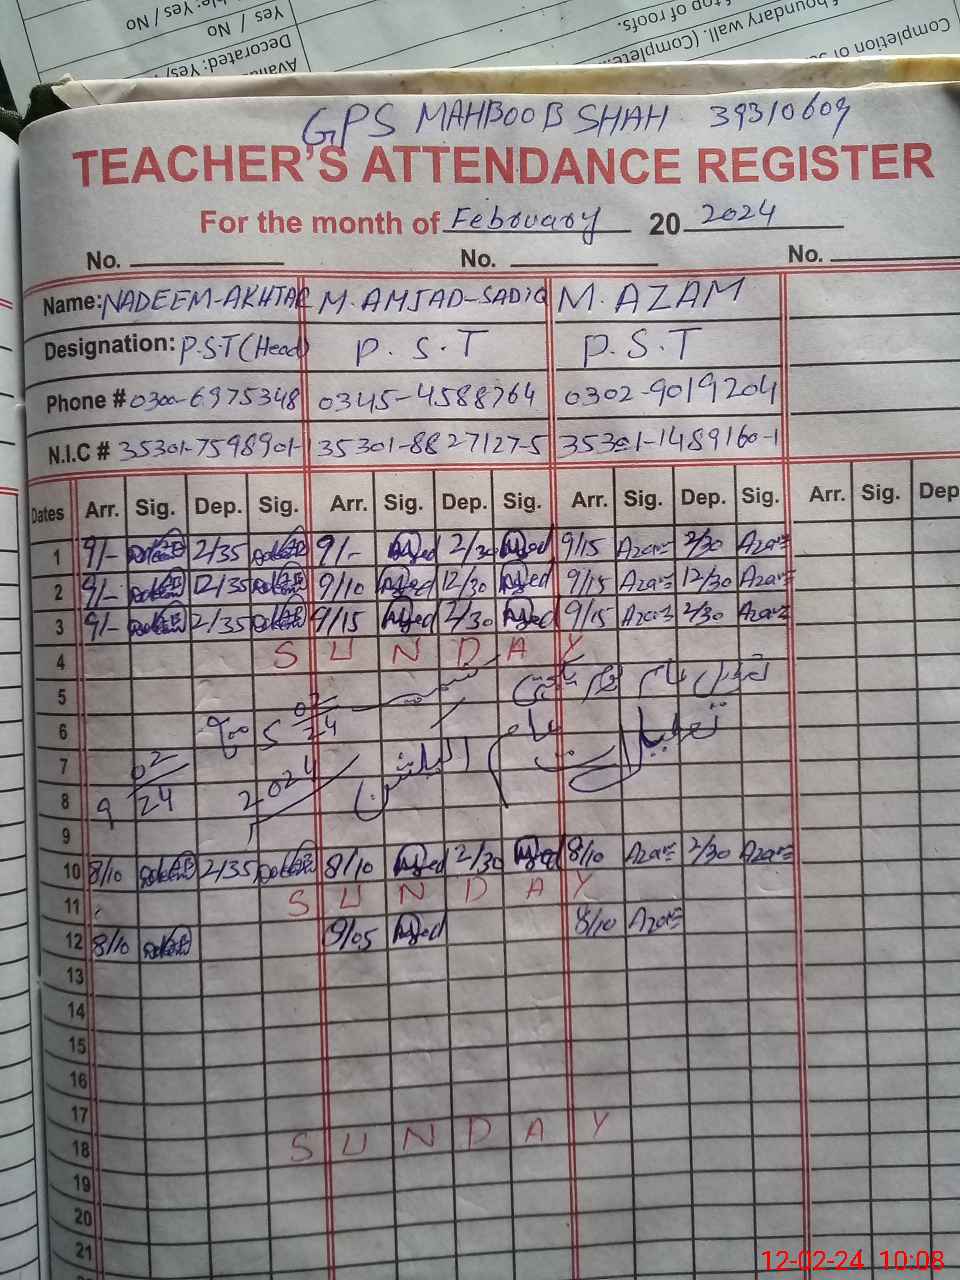 Completion of
f boundary wall. (Complete
top of roofs.
Yes / No
Decorated: Yes/
GPS MAHBOOB SHAH 39310609
TEACHER'S ATTENDANCE REGISTER
For the month of February 20 2024
No. No. No.
Name: NADEEM-AKHTAR M. AMJAD-SADIQ M. AZAM
Designation: P.S.T (Head) P.S.T P.S.T
Phone # 0300-6975348 0345-4588764 0302-9019204
N.I.C # 35301-7598901- 35301-8827127-5 35301-1489160-1
Dates Arr. Sig. Dep. Sig. Arr. Sig. Dep. Sig. Arr. Sig. Dep. Sig. Arr. Sig. Dep
1 9/- 2/35 9/- 2/30 9/15 Azam 2/30 Azam
2 9/- 12/35 9/10 12/30 9/15 Azam 12/30 Azam
3 9/- 2/35 9/15 2/30 9/15 Azam 2/30 Azam
4 SUNDAY
5
6 5 02/24
7
8 9 02/24 2024
9
10 8/10 2/35 8/10 2/30 8/10 Azam 2/30 Azam
11 SUNDAY
12 8/10 8/05 8/10 Azam
13
14
15
16
17
18 SUNDAY
19
20
21
12-02-24 10:08